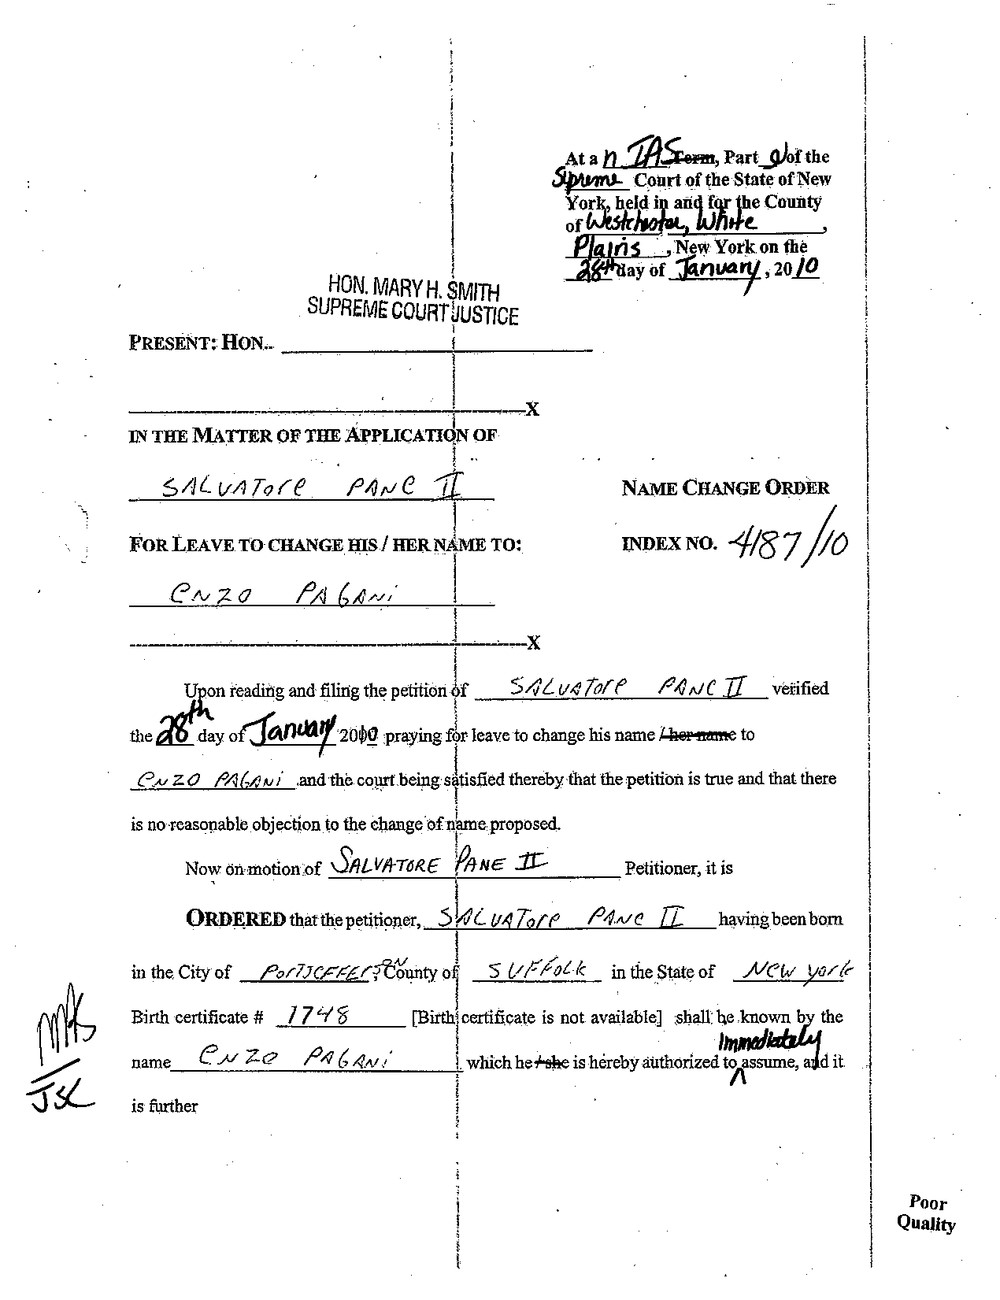 At a n IAS Term, Part of the
Supreme Court of the State of New
York, held in and for the County
of Westchester, White ,
Plains , New York on the
28th day of January , 2010
HON. MARY H. SMITH
SUPREME COURT JUSTICE
PRESENT: HON.
X
IN THE MATTER OF THE APPLICATION OF
SALVATORE PANE II
NAME CHANGE ORDER
FOR LEAVE TO CHANGE HIS / HER NAME TO:
INDEX NO. 4187/10
ENZO PAGANI
X
Upon reading and filing the petition of SALVATORE PANE II verified
the 28th day of January 2010 praying for leave to change his name / her name to
ENZO PAGANI and the court being satisfied thereby that the petition is true and that there
is no reasonable objection to the change of name proposed.
Now on motion of SALVATORE PANE II Petitioner, it is
ORDERED that the petitioner, SALVATORE PANE II having been born
in the City of PORTJEFFERSON County of SUFFOLK in the State of NEW YORK
Birth certificate # 1748 [Birth certificate is not available] shall be known by the
Immediately
name ENZO PAGANI which he / she is hereby authorized to assume, and it
MHS
JSC
is further
Poor
Quality